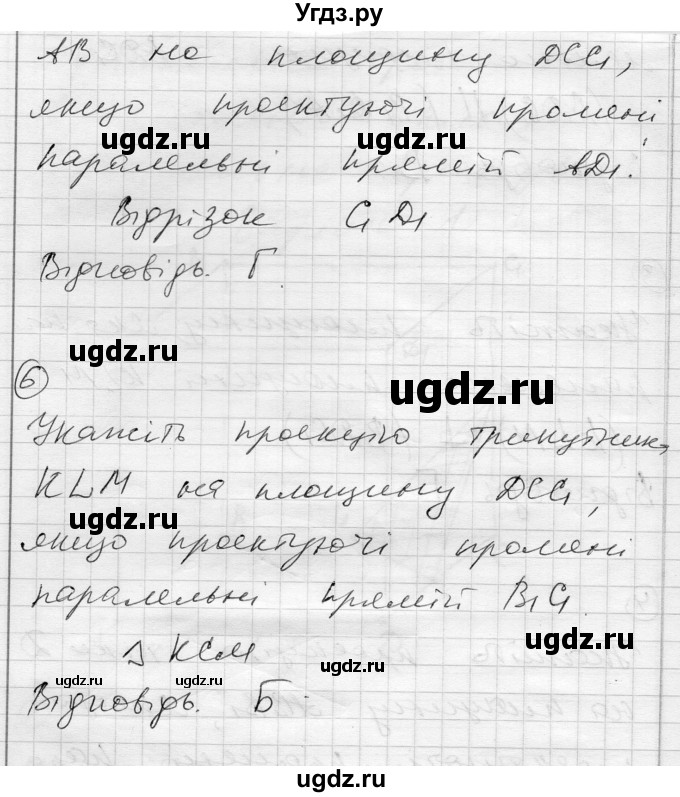 Угдз.ру
АВ на площину DCC₁,
якщо проектуючі промені
ugdz.ru ugdz.ru
паралельні прямій AD₁.
Відрізок C₁D₁
Відповідь. Г.
ugdz.ru
6
ugdz.ru
Укажіть проекцію трикутник
KLM на площину DCC₁,
ugdz.ru
якщо проектуючі промені
паралельні прямій B₁C₁.
ugdz.ru
△ KCM
ugdz.ru ugdz.ru
Відповідь. Б
ugdz.ru
ugdz.ru